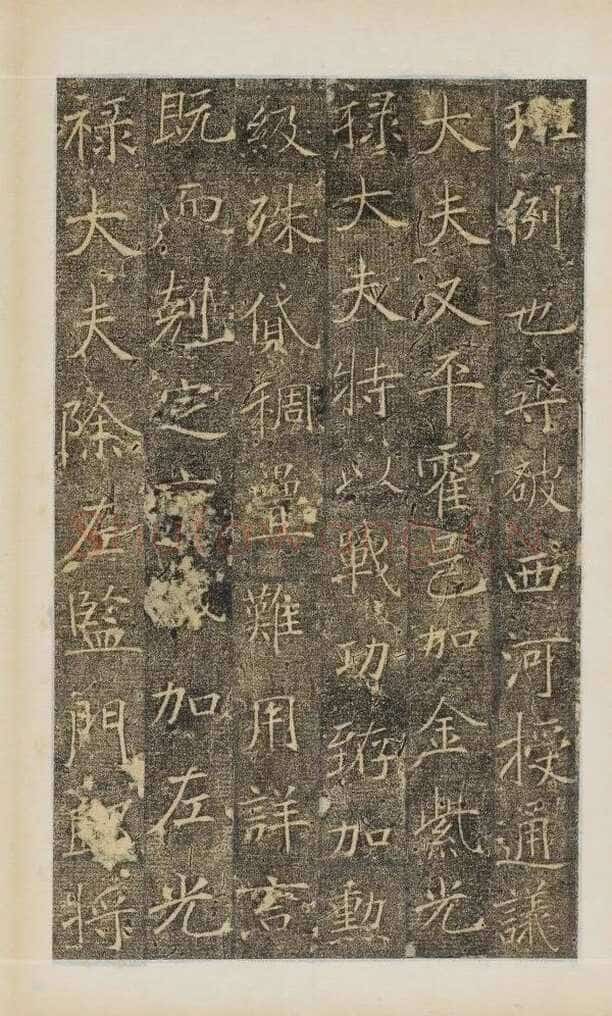 班例也尋破西河授通議
大夫又平霍邑加金紫光
祿大夫特以戰功𨕖加勳
級殊貸稠疊難用詳言
既而剋定京 加左光
祿大夫除左監門郎將